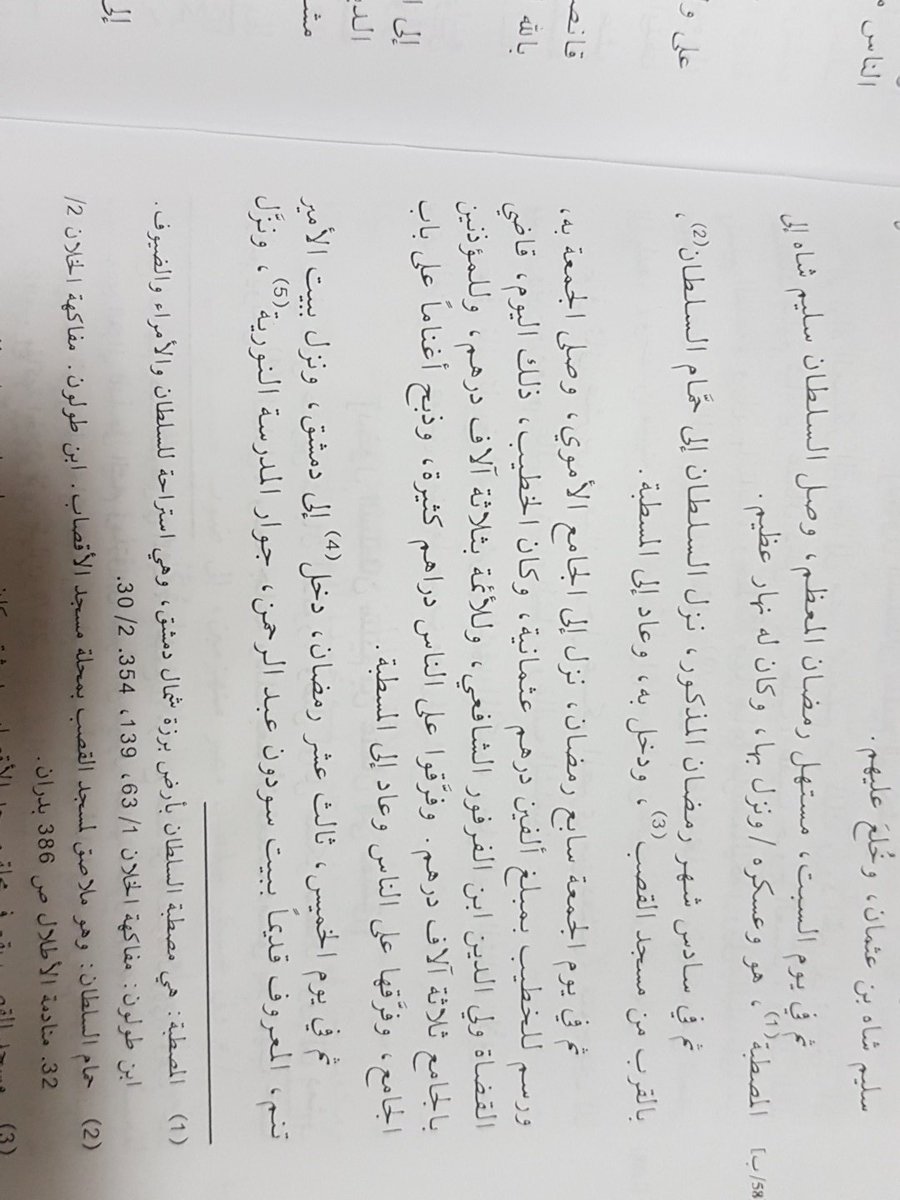 الناس
على و
فانص
بالله
إلى ا
الدي
مش
إلى
سليم شاه بن عثمان، وخُلعَ عليهم.
ثم في يوم السبت، مستهل رمضان المعظم، وصل السلطان سليم شاه إلى
المصطبة(1)، هو وعسكره / ونزل بها، وكان له نهار عظيم. [58/ب]
ثم في سادس شهر رمضان المذكور، نزل السلطان إلى حمَّام السلطان(2)،
بالقرب من مسجد القصب(3)، ودخل به، وعاد إلى المسطبة.
ثم في يوم الجمعة سابع رمضان، نزل إلى الجامع الأموي، وصلى الجمعة به،
ورسم للخطيب بمبلغ ألفين درهم عثمانية، وكان الخطيب، ذلك اليوم، قاضي
القضاة ولي الدين ابن الفرفور الشافعي، وللأئمة بثلاثة آلاف درهم، وللمؤذنين
بالجامع ثلاثة آلاف درهم. وفرَّقوا على الناس دراهم كثيرة، وذبح أغناماً على باب
الجامع، وفرَّقها على الناس وعاد إلى المسطبة.
ثم في يوم الخميس، ثالث عشر رمضان، دخل(4) إلى دمشق، ونزل ببيت الأمير
تنم، المعروف قديماً ببيت سودون عبد الرحمن، جوار المدرسة النورية(5)، ونزَّل
(1) المصطبة: هي مصطبة السلطان بأرض برزة شمال دمشق، وهي استراحة للسلطان والأمراء والضيوف.
ابن طولون: مفاكهة الخلان 1/ 63، 139، 354. 2/ 30.
(2) حمام السلطان: وهو ملاصق لسجد القصب بمحلة مسجد الأقصاب. ابن طولون. مفاكهة الخلان 2/
32. منادمة الأطلال ص 386 بدران.
(3)